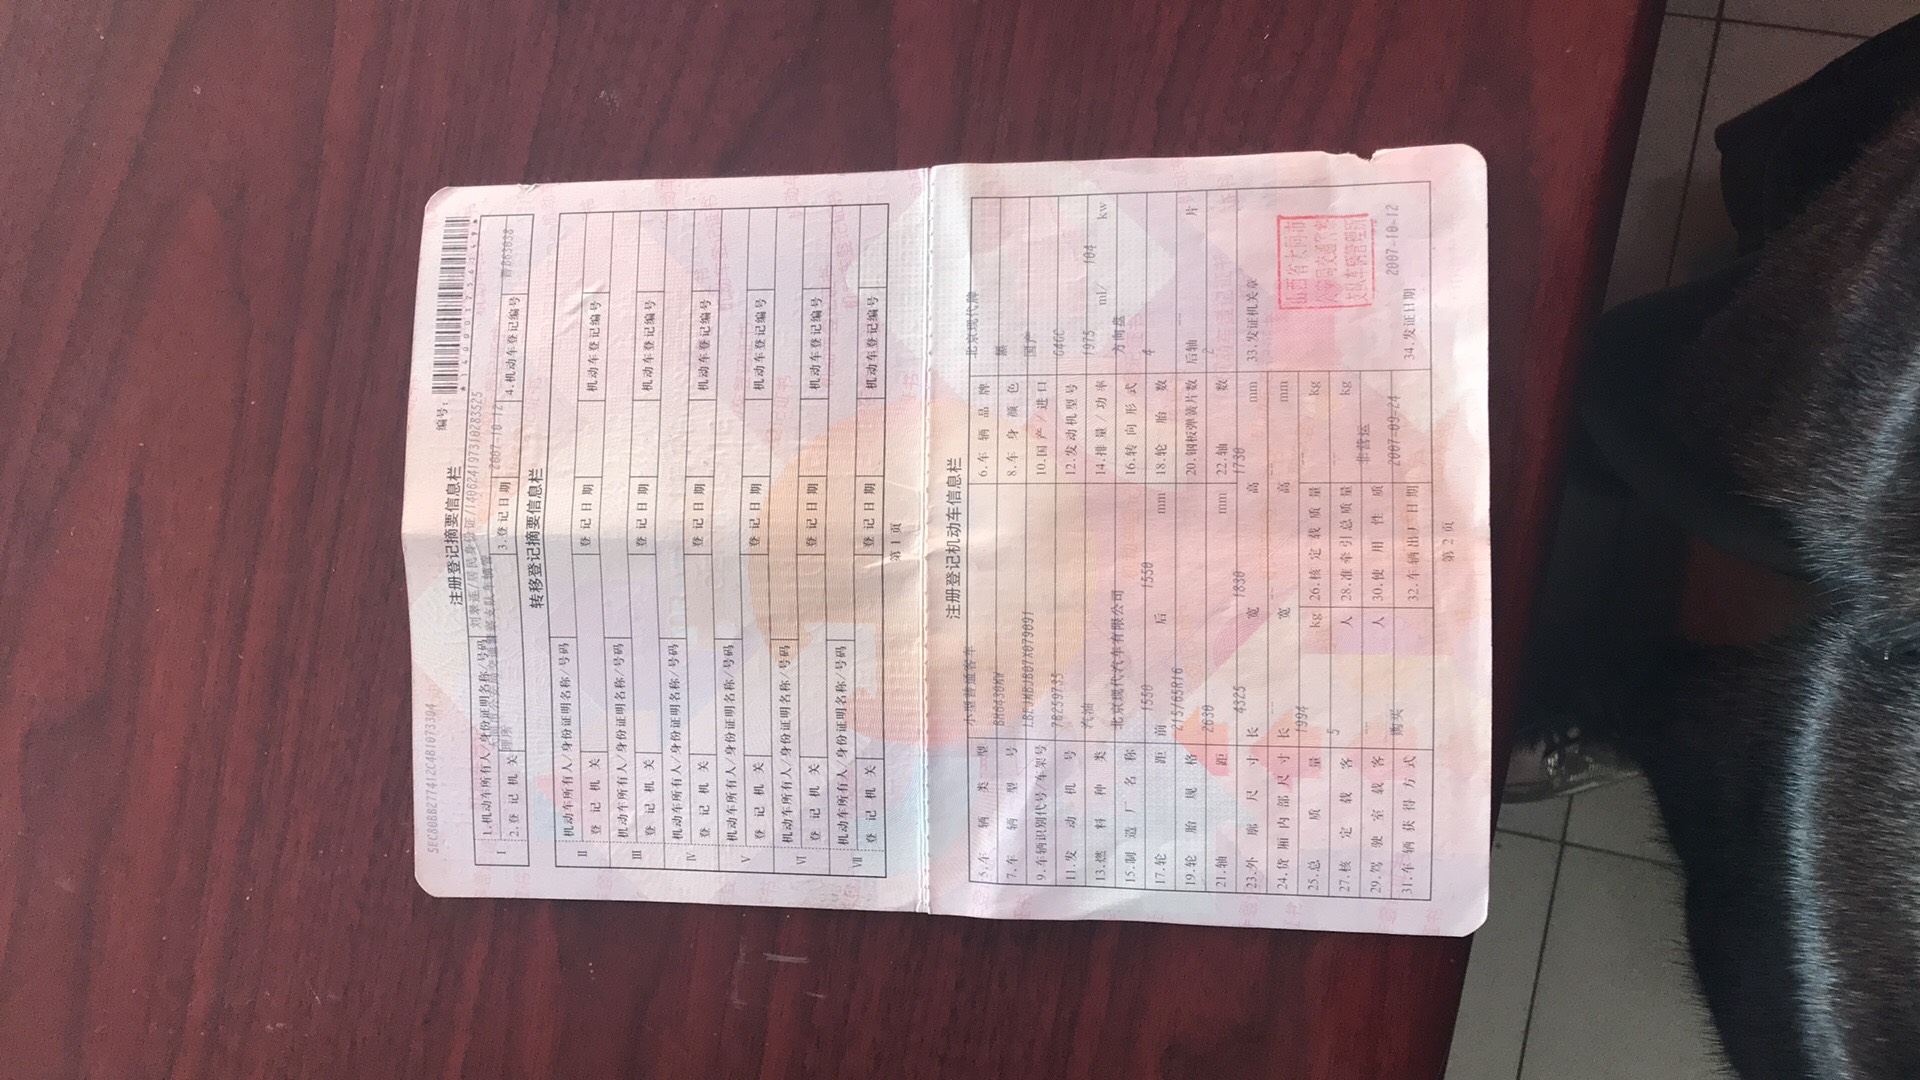 5EC80BB277412C4B1073394
编号：
注册登记摘要信息栏
Ⅰ 1.机动车所有人/身份证明名称/号码 /居民身份证/140624197310283525
2.登记机关 3.登记日期 2007-10-12 4.机动车登记编号
转移登记摘要信息栏
Ⅱ 机动车所有人/身份证明名称/号码
登记机关 登记日期 机动车登记编号
Ⅲ 机动车所有人/身份证明名称/号码
登记机关 登记日期 机动车登记编号
Ⅳ 机动车所有人/身份证明名称/号码
登记机关 登记日期 机动车登记编号
Ⅴ 机动车所有人/身份证明名称/号码
登记机关 登记日期 机动车登记编号
Ⅵ 机动车所有人/身份证明名称/号码
登记机关 登记日期 机动车登记编号
Ⅶ 机动车所有人/身份证明名称/号码
登记机关 登记日期 机动车登记编号
第 1 页
注册登记机动车信息栏
5.车辆类型 小型普通客车 6.车辆品牌 北京现代牌
7.车辆型号 BH6430MW 8.车身颜色 黑
9.车辆识别代号/车架号 LBEJMBJB07X079091 10.国产/进口 国产
11.发动机号 7B259735 12.发动机型号 G4GC
13.燃料种类 汽油 14.排量/功率 1975 ml/ 104 kw
15.制造厂名称 北京现代汽车有限公司 16.转向形式 方向盘
17.轮距 前 1550 后 1550 mm 18.轮胎数 4
19.轮胎规格 215/65R16 20.钢板弹簧片数 后轴 -- 片
21.轴距 2630 mm 22.轴数 2
23.外廓尺寸 长 4325 宽 1830 高 1730 mm 33.发证机关章
24.货厢内部尺寸 长 宽 高 mm
25.总质量 1994 kg 26.核定载质量 kg
27.核定载客 5 人 28.准牵引总质量 kg
29.驾驶室载客 -- 人 30.使用性质 非营运
31.车辆获得方式 购买 32.车辆出厂日期 2007-09-24 34.发证日期 2007-10-12
山西省大同市
公安局交通警察
支队车辆管理所
第 2 页